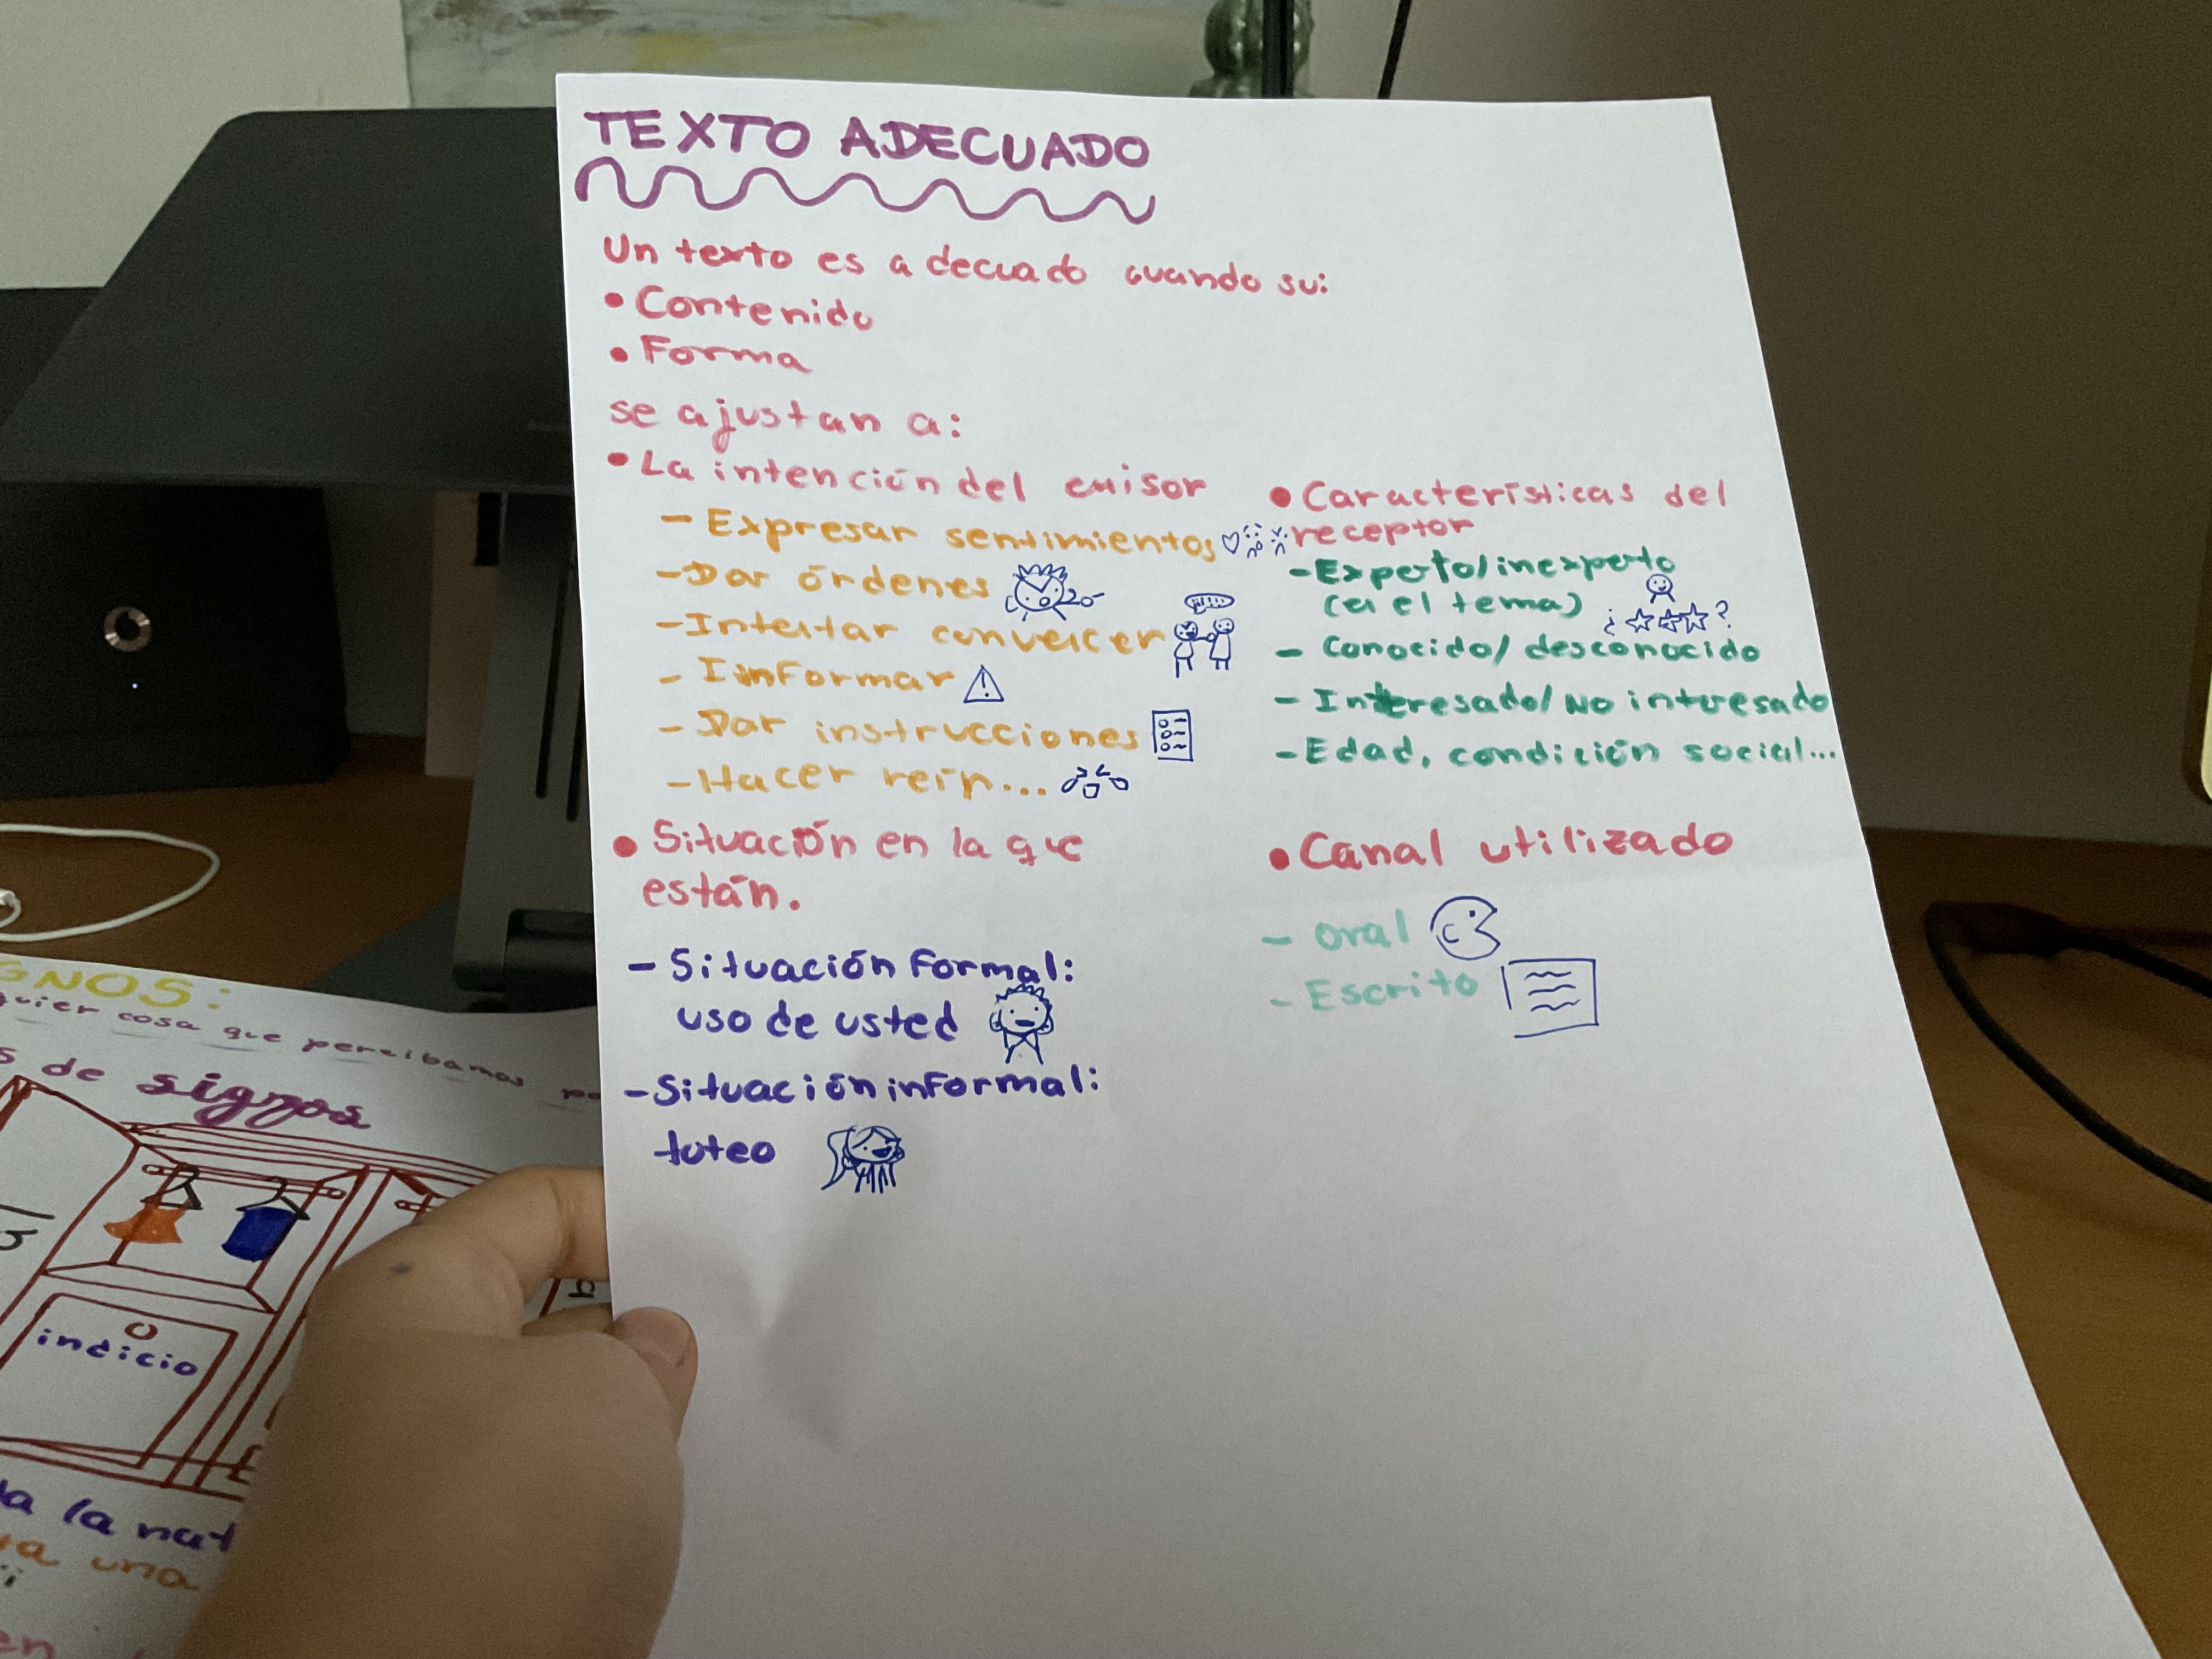 TEXTO ADECUADO
Un texto es adecuado cuando su:
• Contenido
• Forma
se ajustan a:
• La intención del emisor
- Expresar sentimientos
- Dar órdenes
- Intentar convencer
- Informar
- Dar instrucciones
- Hacer reír...
• Características del
receptor
- Experto/inexperto
(en el tema)
¿ ?
- Conocido/desconocido
- Interesado/No interesado
- Edad, condición social...
• Situación en la que
están.
- Situación formal:
uso de usted
- Situación informal:
tuteo
• Canal utilizado
- oral
- Escrito
GNOS:
quier cosa que percibamos
s de signos
indicio
la nat
una